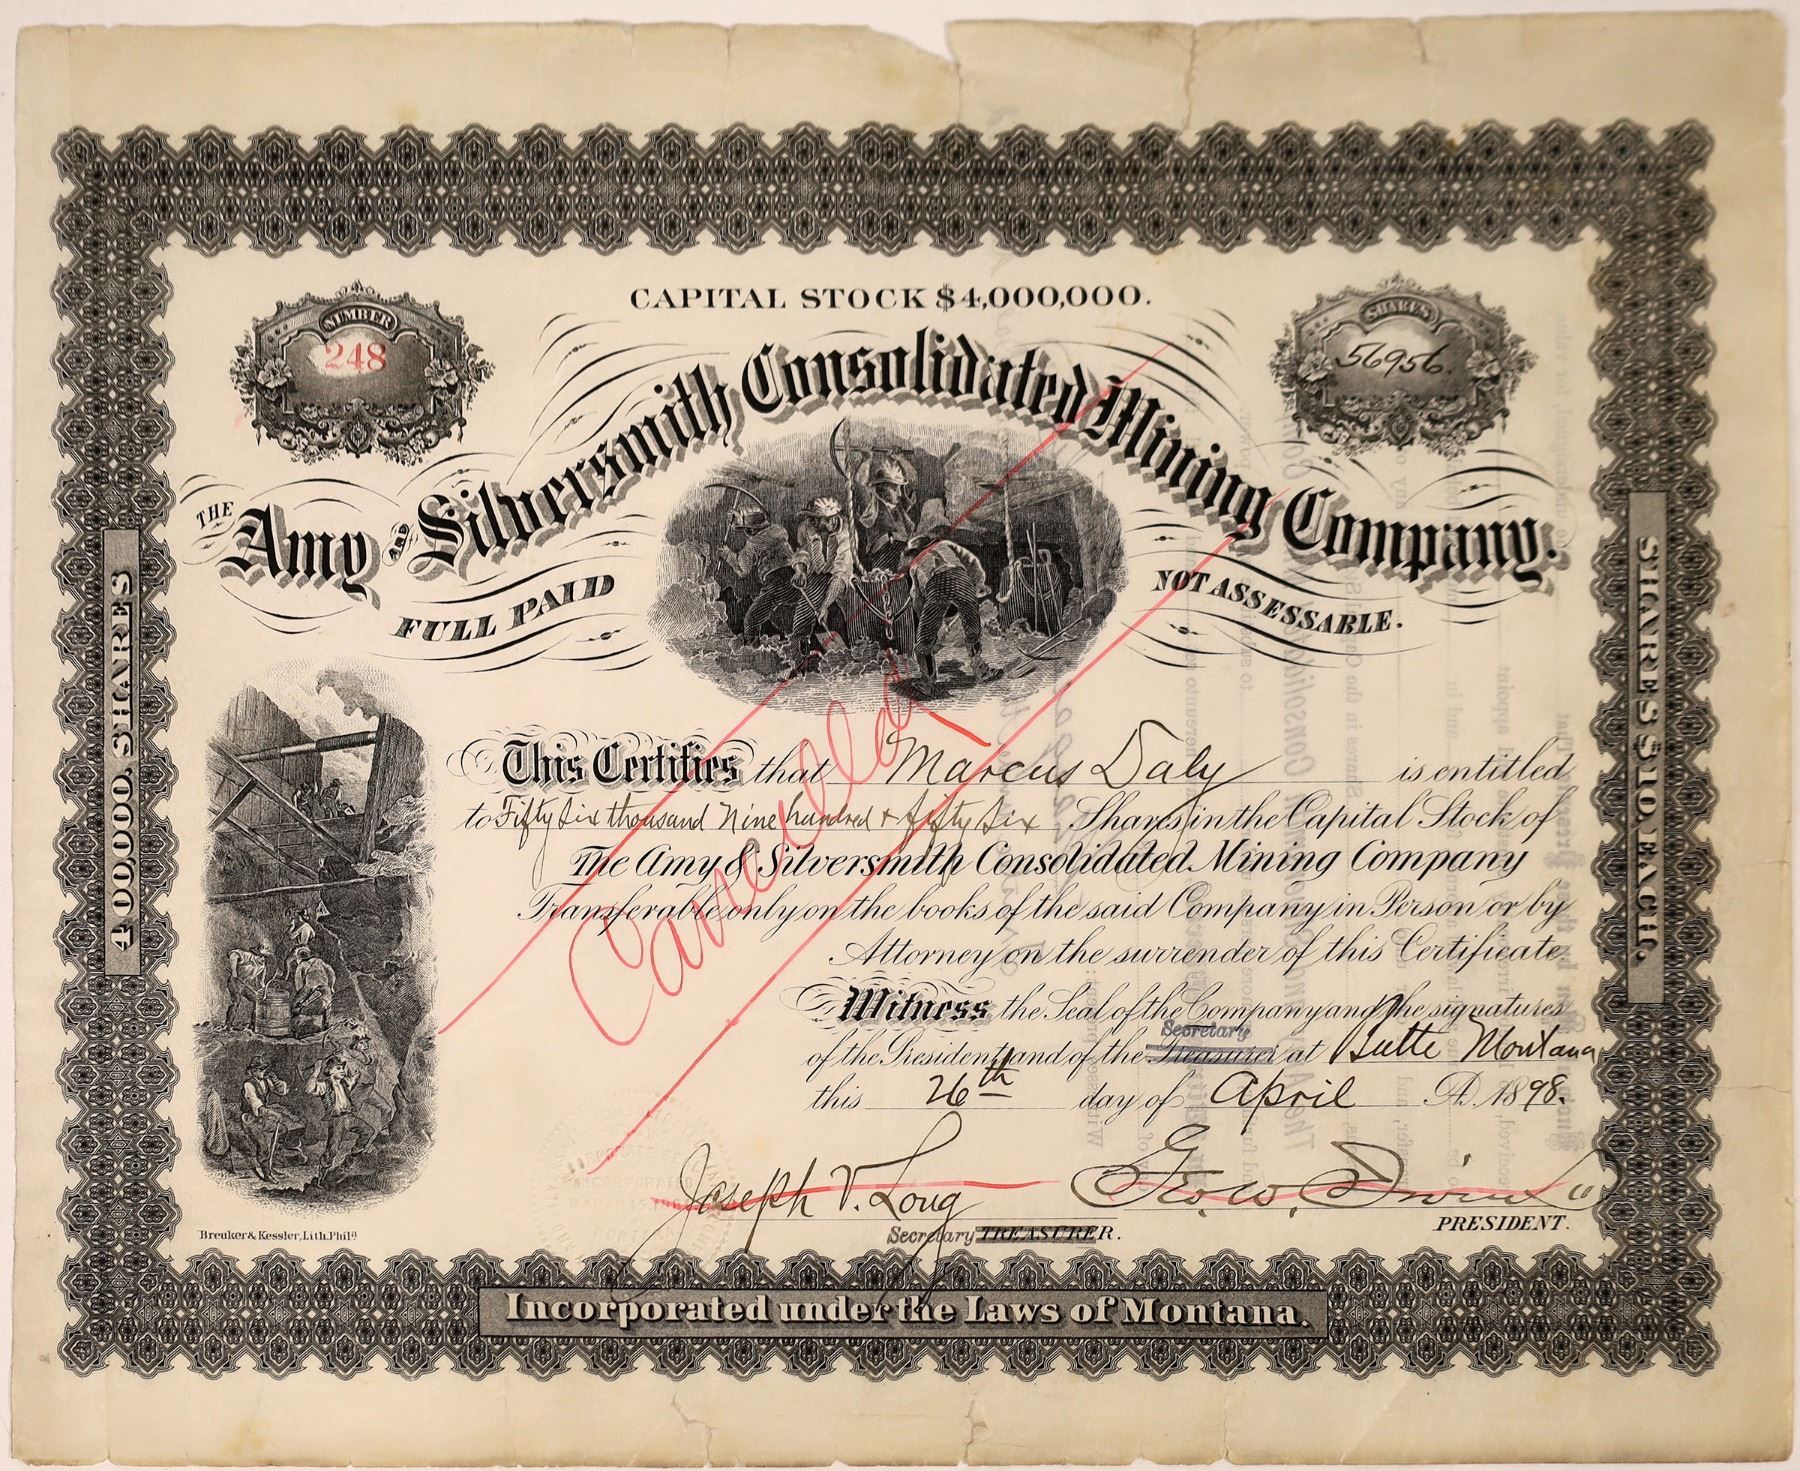 CAPITAL STOCK $4,000,000.
NUMBER
248
SHARES
56956.
THE Amy AND Silversmith Consolidated Mining Company.
FULL PAID
NOT ASSESSABLE.
400,000 SHARES
SHARES $10, EACH.
This Certifies that Marcus Daly is entitled
to Fifty Six thousand Nine hundred & fifty Six Shares in the Capital Stock of
The Amy & Silversmith Consolidated Mining Company
Transferable only on the books of the said Company in Person or by
Attorney on the surrender of this Certificate.
Cancelled
Witness the Seal of the Company and the signatures
Secretary
of the President and of the Treasurer at Butte Montana
this 26th day of April A.D. 1898.
Joseph V. Long
Geo. W. Irvin
Secretary TREASURER.
PRESIDENT.
Breuker & Kessler, Lith. Phila.
Incorporated under the Laws of Montana.